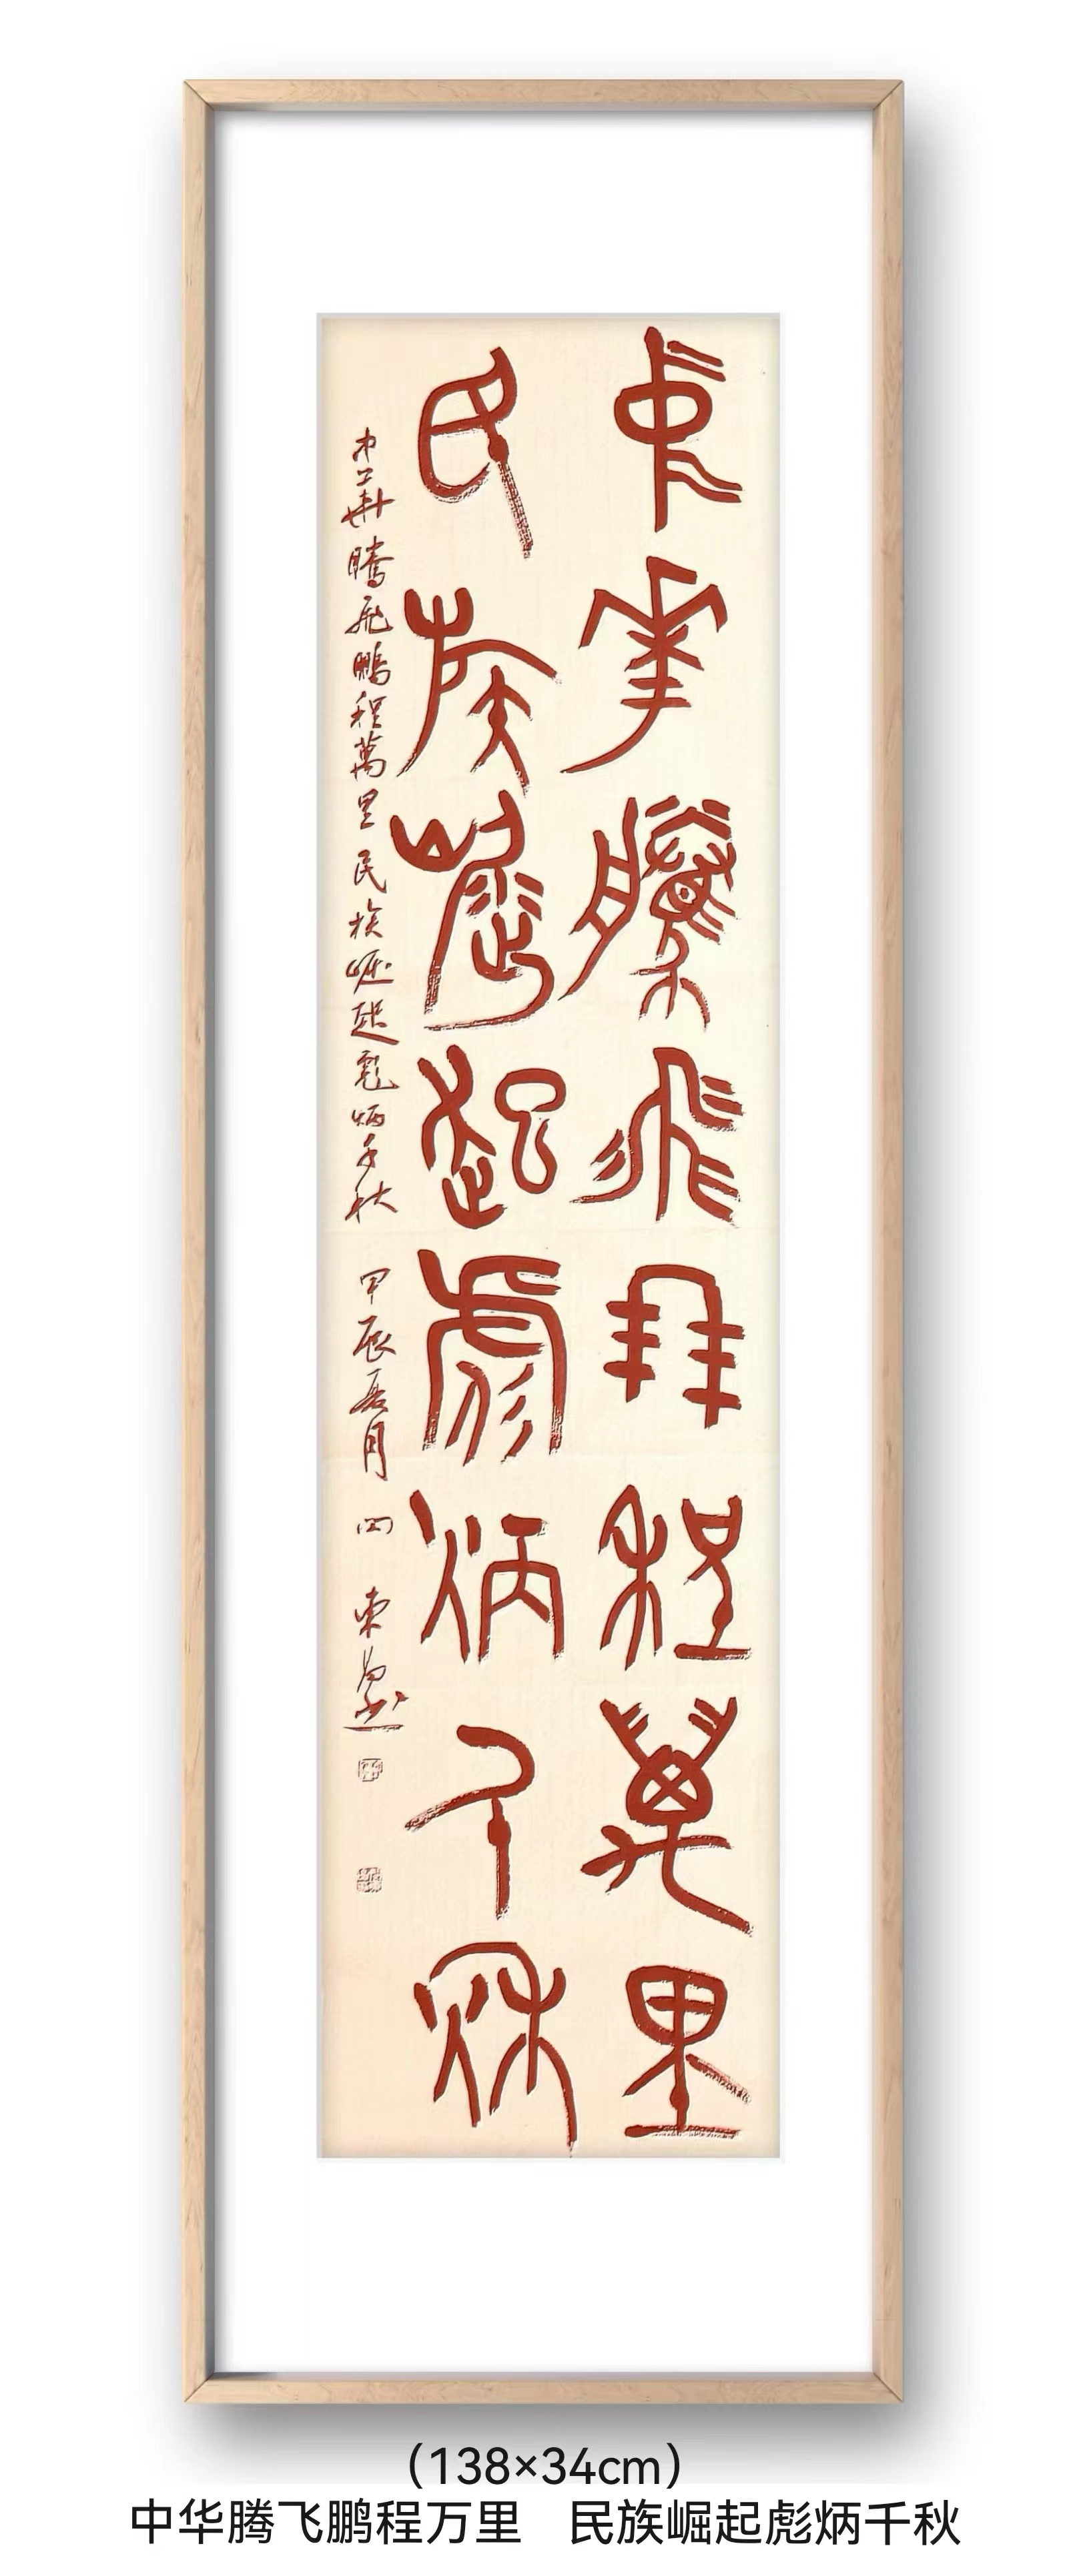 中華騰飛朋程萬里
民族崛起彪炳千秋
中華騰飛鵬程萬里民族崛起彪炳千秋 甲辰 月
(138×34cm)
中华腾飞鹏程万里 民族崛起彪炳千秋